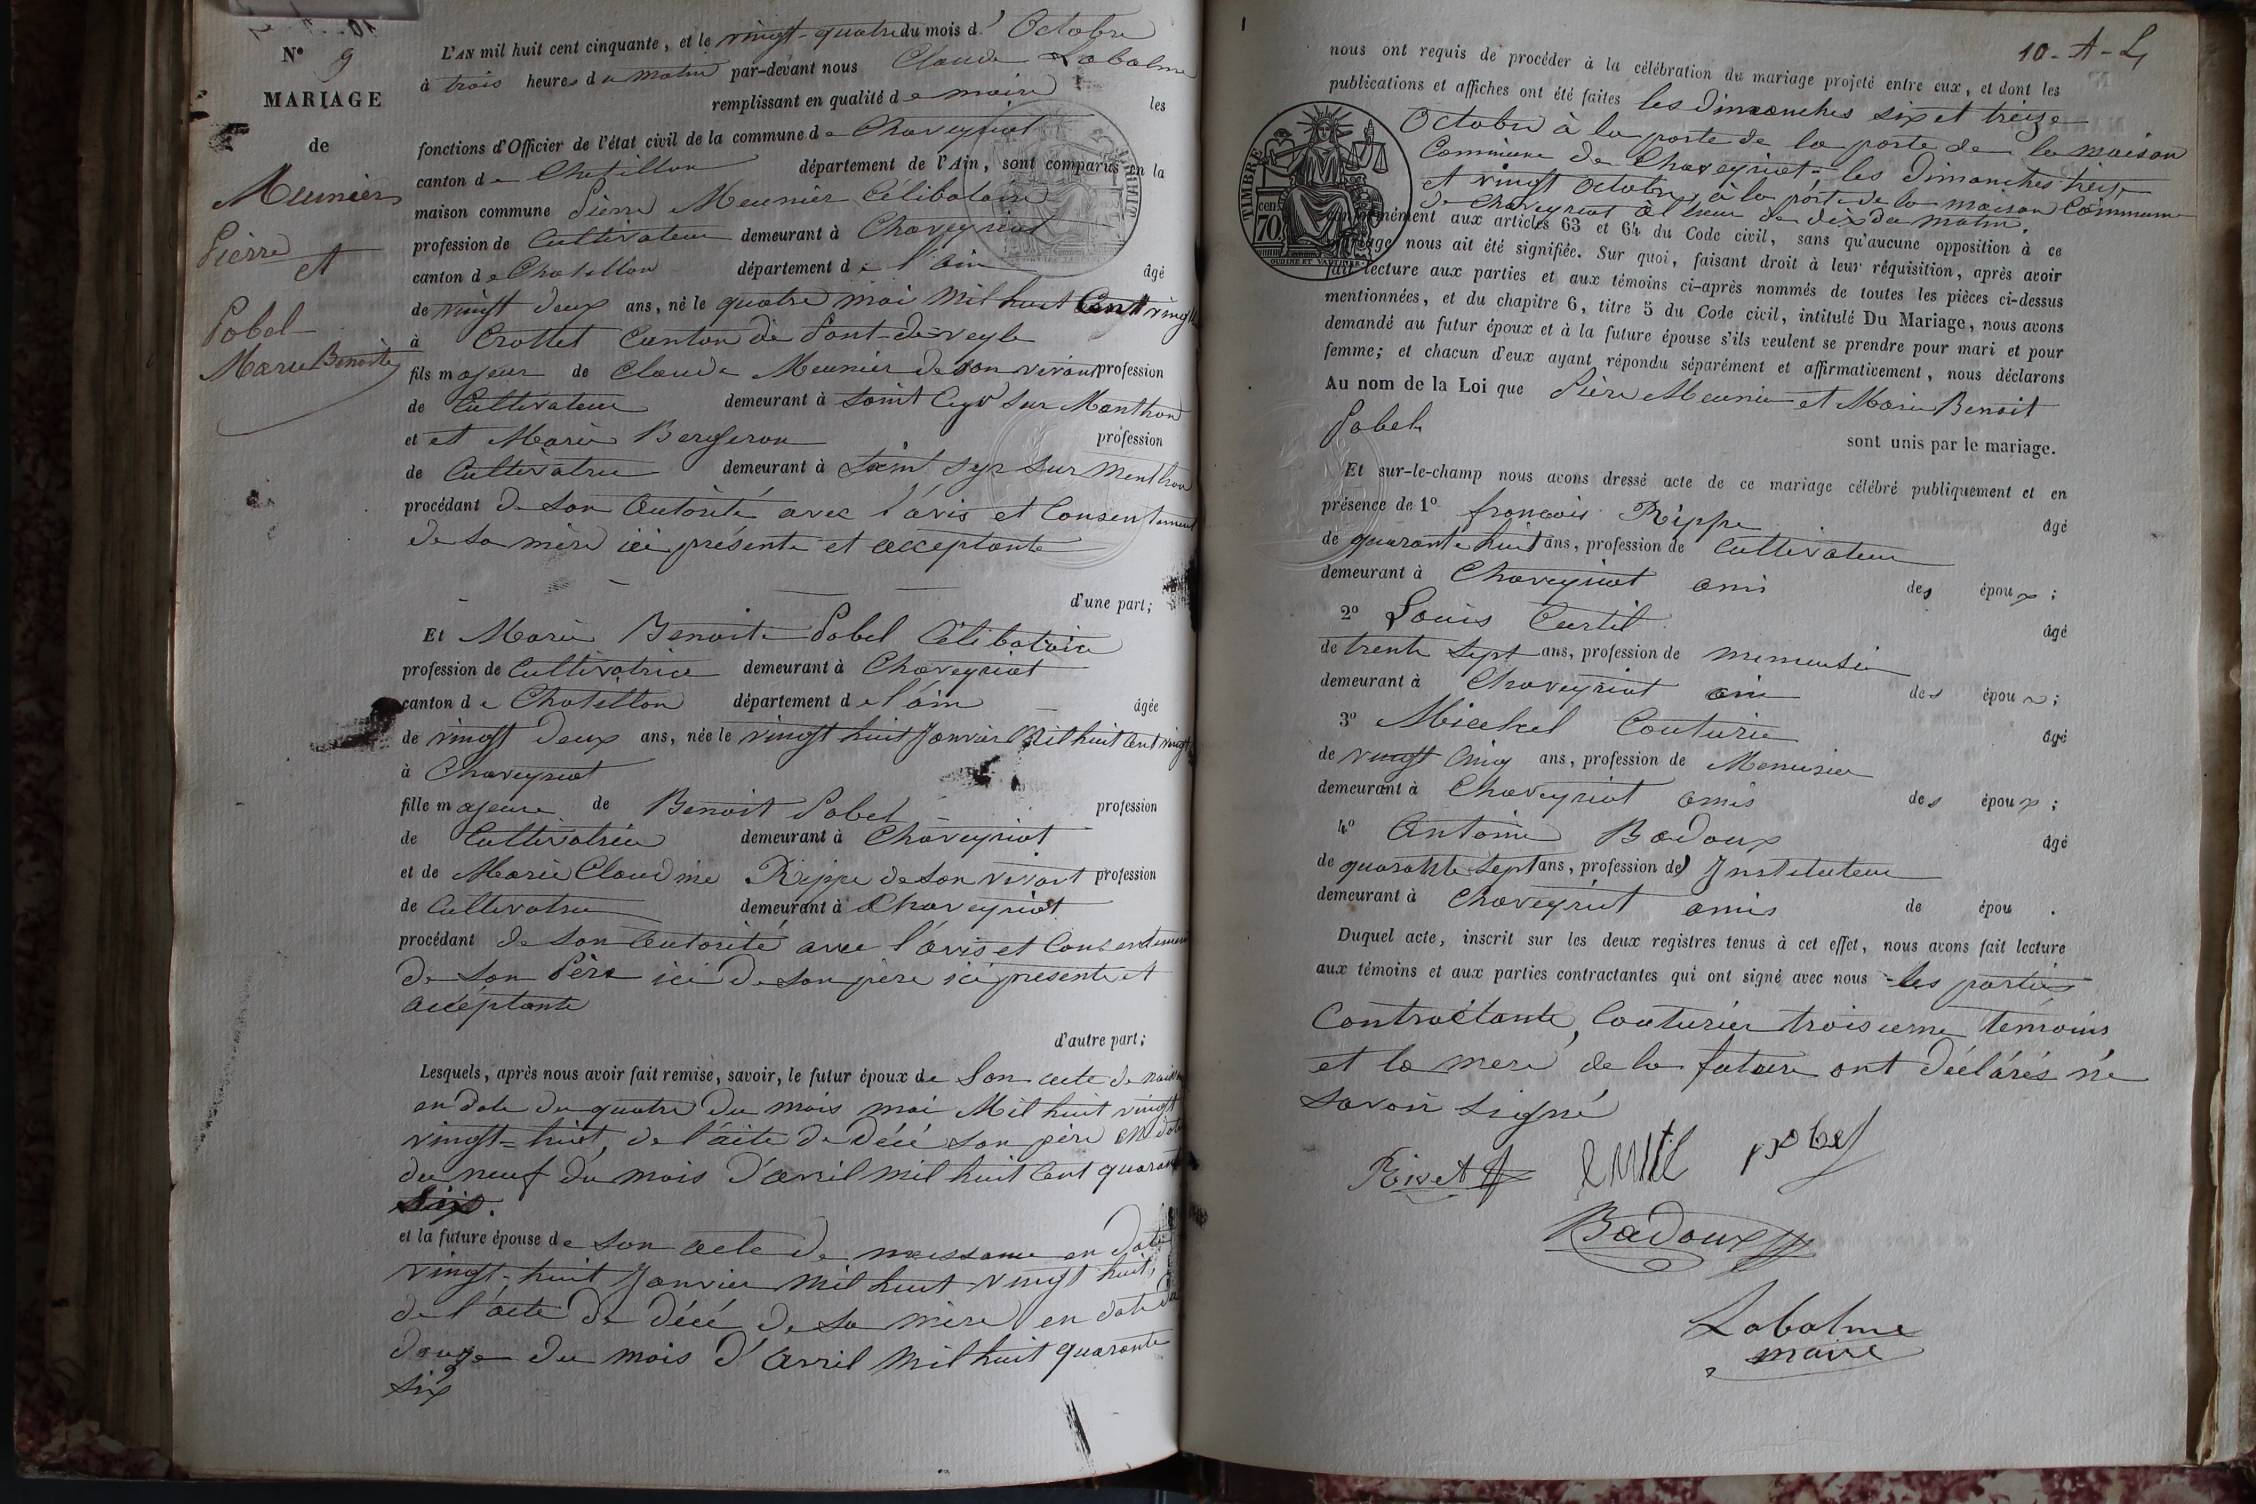 N° 9
MARIAGE
de
Meunier
Pierre
et
Pobel
Marie Benoite
L'AN mil huit cent cinquante, et le vingt-quatre du mois d' Octobre
à trois heures du matin par-devant nous Claude Labalme
remplissant en qualité de maire les
fonctions d'Officier de l'état civil de la commune de Chaveyriat
canton de Chatillon département de l'Ain, sont comparus en la
maison commune Pierre Meunier Célibataire
profession de Cultivateur demeurant à Chaveyriat
canton de Chatillon département de l'ain âgé
de vingt deux ans, né le quatre mai mil huit Cent vingt
à Crottet Canton de Pont-de-veyle
fils majeur de Claude Meunier de son vivant profession
de Cultivateur demeurant à saint Cyr sur Manthon
et et Marie Bergeron profession
de Cultivatrice demeurant à saint Syr sur Menthon
procédant de son autorité avec l'avis et Consentement
de sa mère ici présente et acceptante
d'une part;
Et Marie Benoite Pobel Célibataire
profession de Cultivatrice demeurant à Chaveyriat
canton de Chatillon département de l'ain âgée
de vingt deux ans, née le vingt huit Janvier Mil huit Cent vingt
à Chaveyriat
fille majeure de Benoit Pobel profession
de Cultivateur demeurant à Chaveyriat
et de Marie Claudine Rippe de son vivant profession
de Cultivatrice demeurant à Chaveyriat
procédant de son autorité avec l'avis et Consentement
de son Père ici de son père ici présente et
acceptante
d'autre part;
Lesquels, après nous avoir fait remise, savoir, le futur époux de Son acte de
en date du quatre du mois mai Mil huit vingt
vingt-huit, de l'acte de décé son père en date
du neuf du mois d'avril mil huit Cent quarante
six.
et la future épouse de son acte de naissance en date
vingt-huit Janvier Mil huit vingt huit,
de l'acte de décé de sa mère en date du
douze du mois d'avril Mil huit quarante
six
10 - A - L
nous ont requis de procéder à la célébration du mariage projeté entre eux, et dont les
publications et affiches ont été faites les Dimanches six et treize
Octobre à la porte de la porte de la maison
Commune de Chaveyriat - les dimanches treize
et vingt octobre, à la porte de la maison Commune
de Chaveyriat à l'heure de dix du matin.
TIMBRE
70 cen
OUDINÉ ET
conformément aux articles 63 et 64 du Code civil, sans qu'aucune opposition à ce
mariage nous ait été signifiée. Sur quoi, faisant droit à leur réquisition, après avoir
fait lecture aux parties et aux témoins ci-après nommés de toutes les pièces ci-dessus
mentionnées, et du chapitre 6, titre 5 du Code civil, intitulé Du Mariage, nous avons
demandé au futur époux et à la future épouse s'ils veulent se prendre pour mari et pour
femme; et chacun d'eux ayant répondu séparément et affirmativement, nous déclarons
Au nom de la Loi que Pierre Meunier et Marie Benoit
Pobel
sont unis par le mariage.
Et sur-le-champ nous avons dressé acte de ce mariage célébré publiquement et en
présence de 1° françois Rippe âgé
de quarante huit ans, profession de Cultivateur
demeurant à Chaveyriat ami des époux;
2° Louis Curtil âgé
de trente sept ans, profession de menuisié
demeurant à Chaveyriat ami des époux;
3° Mickel Couturier âgé
de vingt Cinq ans, profession de Menuisier
demeurant à Chaveyriat amis des époux;
4° Antoine Badoux âgé
de quarante sept ans, profession de Instituteur
demeurant à Chaveyriat amis de épou .
Duquel acte, inscrit sur les deux registres tenus à cet effet, nous avons fait lecture
aux témoins et aux parties contractantes qui ont signé avec nous les parties
Contractante, Couturier troisieme témoins
et la mere de la future ont déclarés né
savoir signé
pobel
Badoux
Labalme
maire